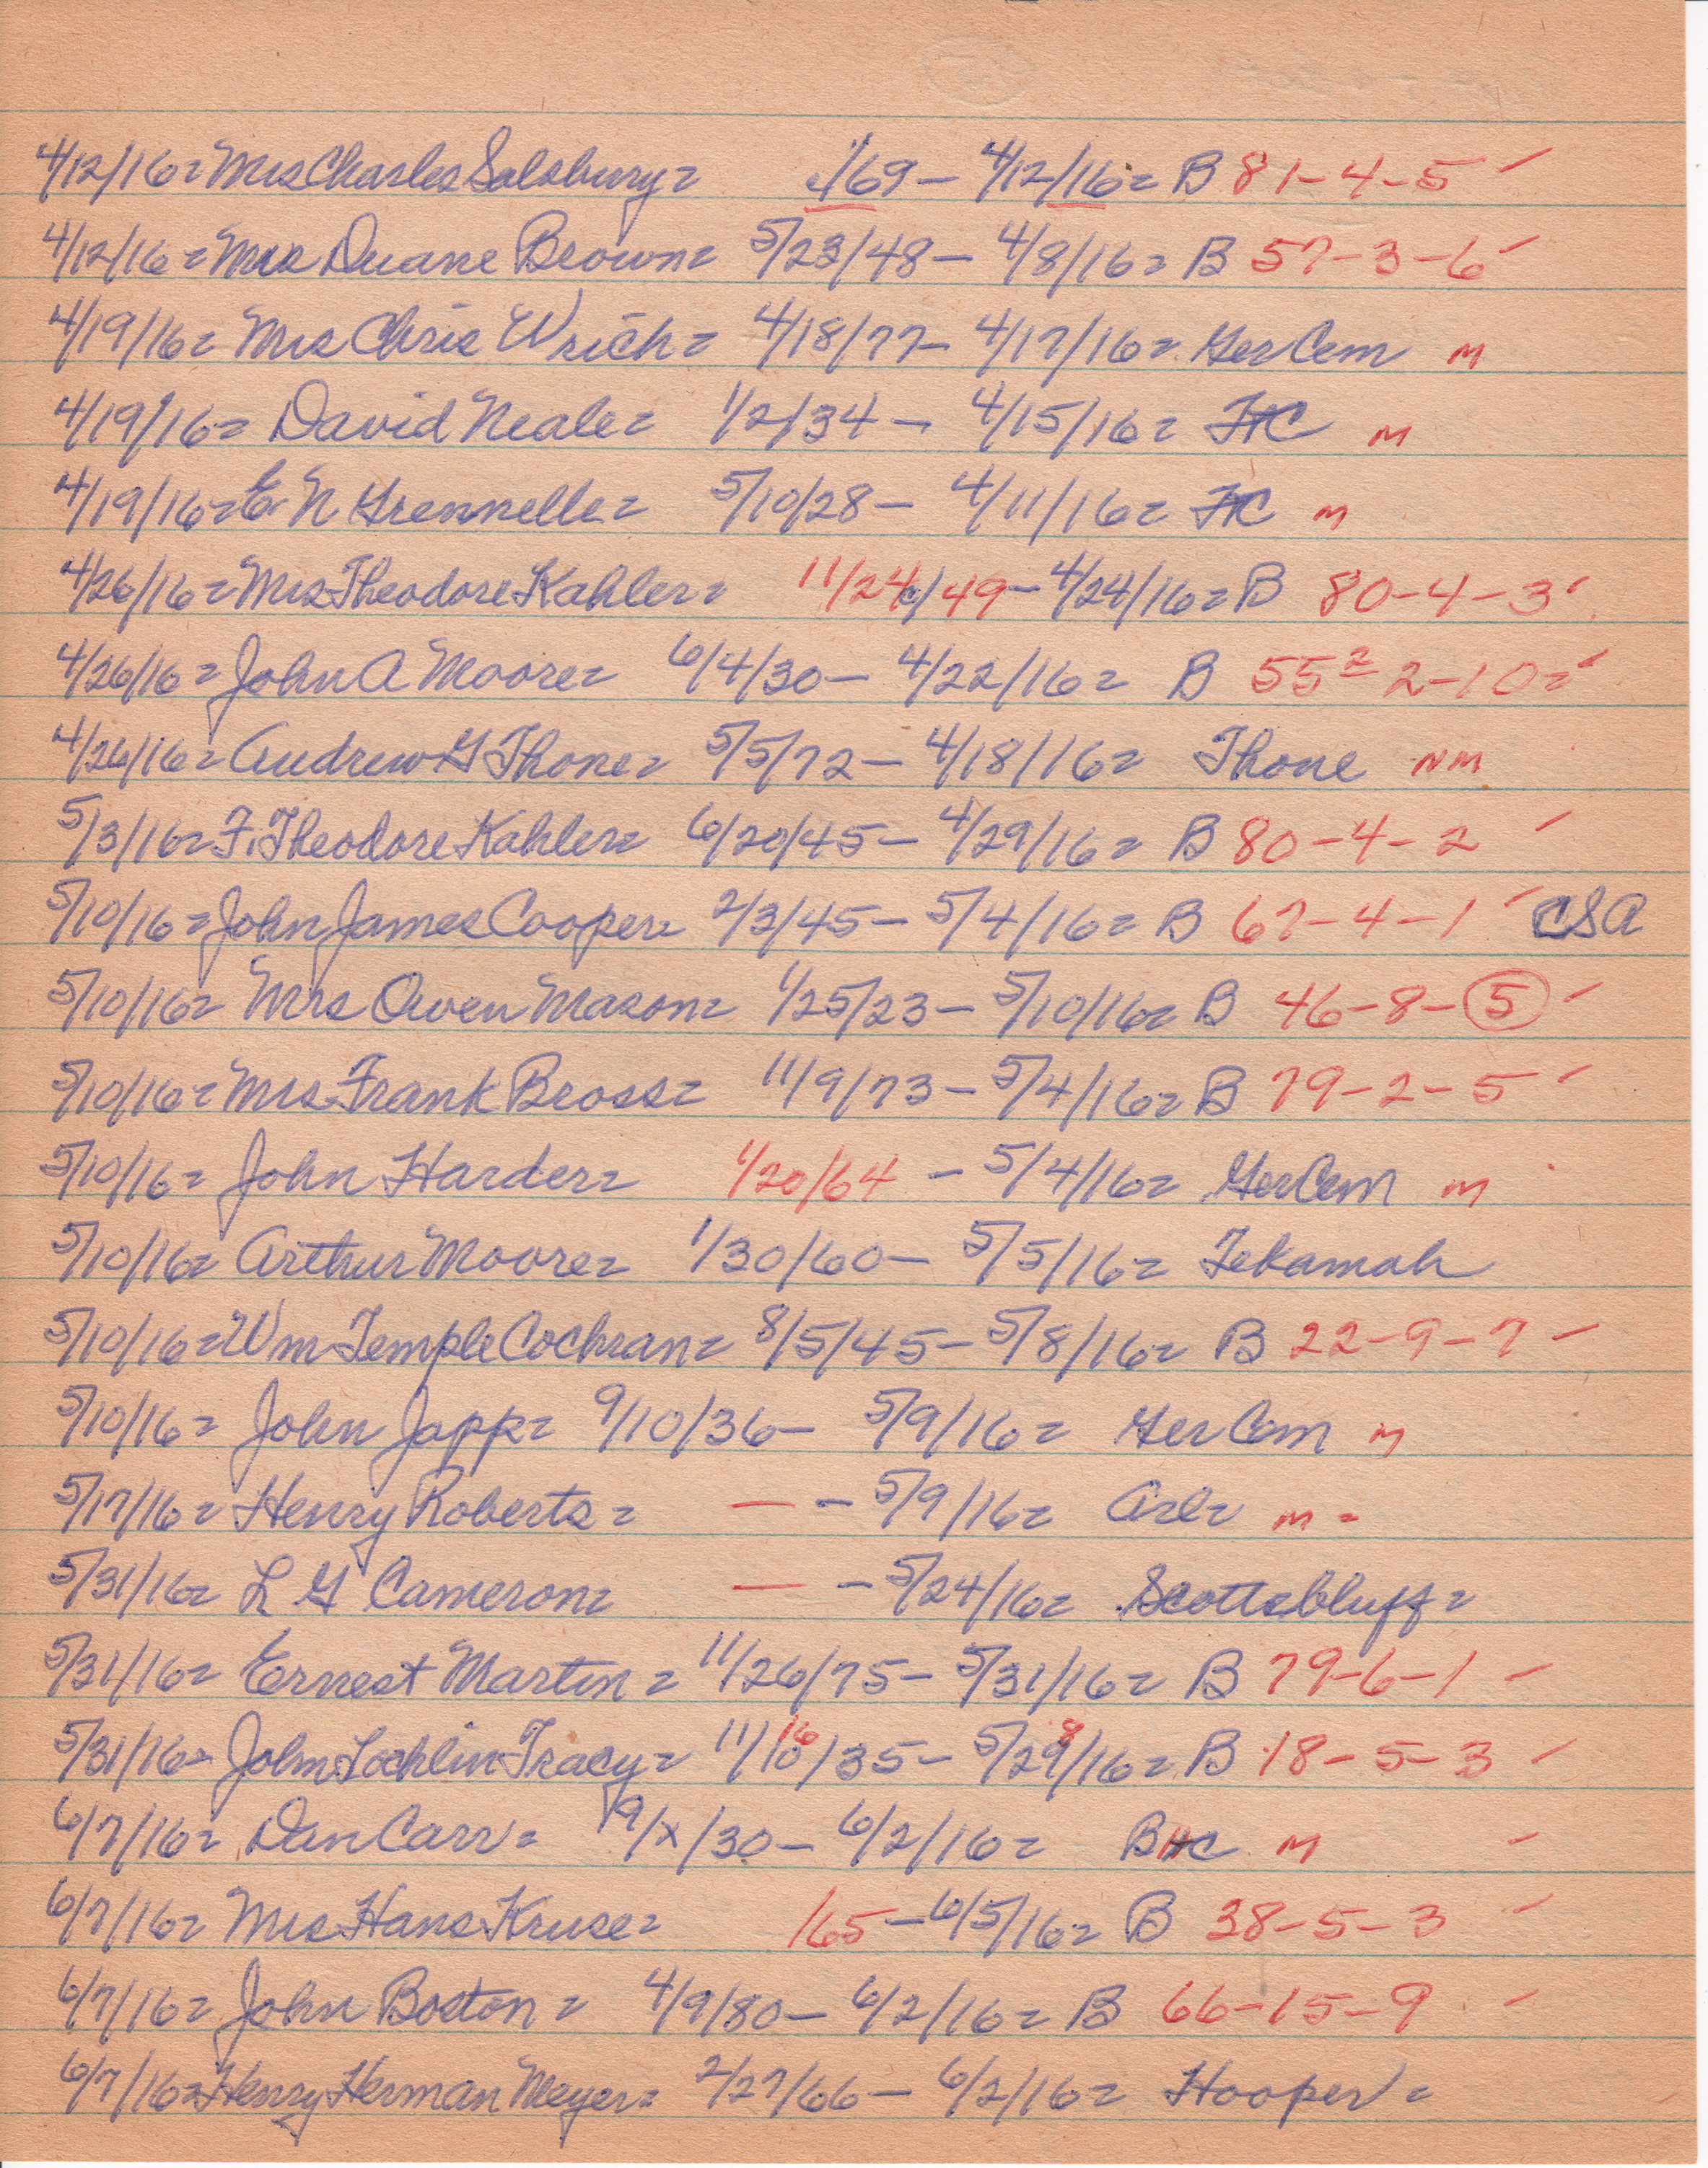 4/12/16= Mrs Charles Salsbury= 1/69 - 4/12/16= B 81-4-5 ✓
4/12/16= Mrs Duane Brown= 5/23/48 - 4/8/16= B 57-3-6 ✓
4/19/16= Mrs Chris Wrich= 4/18/77 - 4/17/16= Ger Cem M
4/19/16= David Neale= 1/2/34 - 4/15/16= FC M
4/19/16= E N Grennelle= 5/10/28 - 4/11/16= FC M
4/26/16= Mrs Theodore Kahler= 11/24/49 - 4/24/16= B 80-4-3 ✓
4/26/16= John A Moore= 6/4/30 - 4/22/16= B 55= 2-10= ✓
4/26/16= Andrew G Thone= 5/5/72 - 4/18/16= Thone NM
5/3/16= F. Theodore Kahler= 6/20/45 - 4/29/16= B 80-4-2 ✓
5/10/16= John James Cooper= 2/3/45 - 5/4/16= B 67-4-1 ✓ CSA
5/10/16= Mrs Owen Mason= 1/25/23 - 5/10/16= B 46-8-5 ✓
5/10/16= Mrs Frank Bross= 11/9/73 - 5/4/16= B 79-2-5 ✓
5/10/16= John Harder= 1/20/64 - 5/4/16= Ger Cem M
5/10/16= Arthur Moore= 1/30/60 - 5/5/16= Tekamah
5/10/16= Wm Temple Cochran= 8/5/45 - 5/8/16= B 22-9-7 -
5/10/16= John Japp= 9/10/36 - 5/9/16= Ger Cem M
5/17/16= Henry Roberts= — - 5/9/16= Arl= M =
5/31/16= L G Cameron= — - 5/24/16= Scottsbluff=
5/31/16= Ernest Martin= 11/26/75 - 5/31/16= B 79-6-1 -
5/31/16= John Locklin Tracy= 11/10 16/35 - 5/29 8/16= B 18-5-3 -
6/7/16= Dan Carr= 9/x/30 - 6/2/16= BHC M -
6/7/16= Mrs Hans Kruse= /65 - 6/5/16= B 38-5-3 -
6/7/16= John Boston= 4/9/80 - 6/2/16= B 66-15-9 -
6/7/16= Henry Herman Meyer= 2/27/66 - 6/2/16= Hooper=